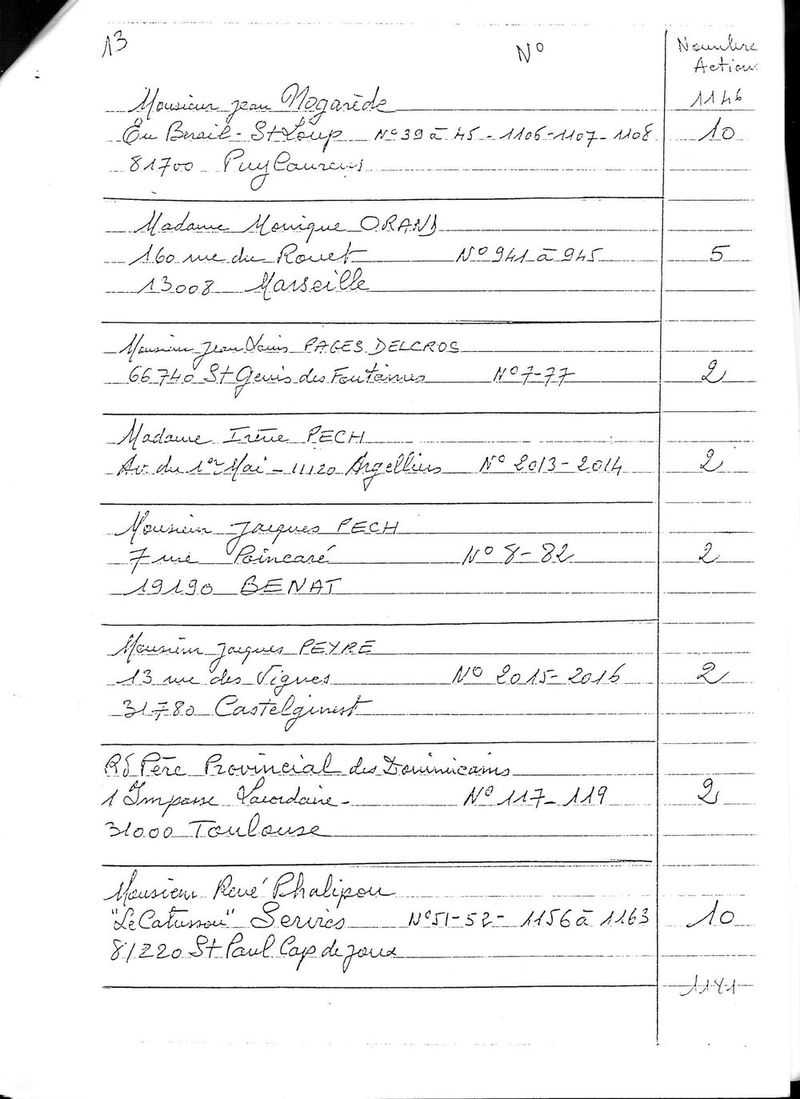 13
N°
Nombre
Action
1146
Monsieur Jean Nogarède
En Berail - St Loup N° 39 à 45 - 1106-1107-1108 10
81700 PuyLaurens
Madame Monique ORAND
160 rue du Rouet N° 941 à 945 5
13008 Marseille
Monsieur Jean Louis PAGES DELCROS
66740 St Genis des Fontaines N° 7-77 2
Madame Irène PECH
Av. du 1er Mai - 11120 Argelliers N° 2013-2014 2
Monsieur Jacques PECH
7 rue Poincaré N° 8-82 2
19190 BENAT
Monsieur Jacques PEYRE
13 rue des Vignes N° 2015-2016 2
31780 Castelginest
Rd Père Provincial des Dominicains
1 Impasse Lacordaire - N° 117-119 2
31000 Toulouse
Monsieur René Phalipou
"Le Catussou" Serviès N° 51-52- 1156 à 1163 10
81220 St Paul Cap de Joux
1181